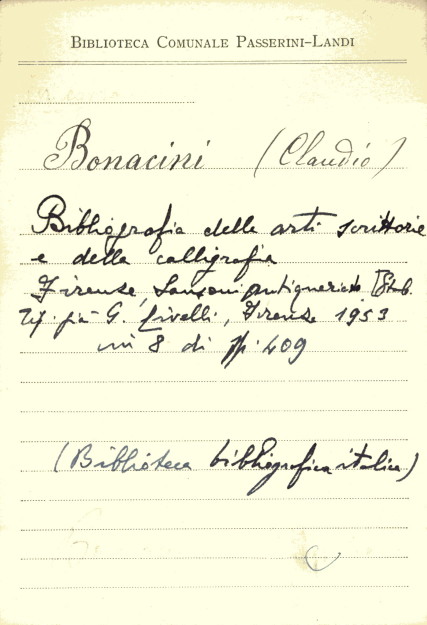 BIBLIOTECA COMUNALE PASSERINI-LANDI
Bonacini (Claudio)
Bibliografia delle arti scrittorie
e della calligrafia
Firenze, Sansoni antiquariato [Stab.
Tip. già G. Civelli, Firenze 1953
in 8 di pp. 409
(Biblioteca bibliografica italica)